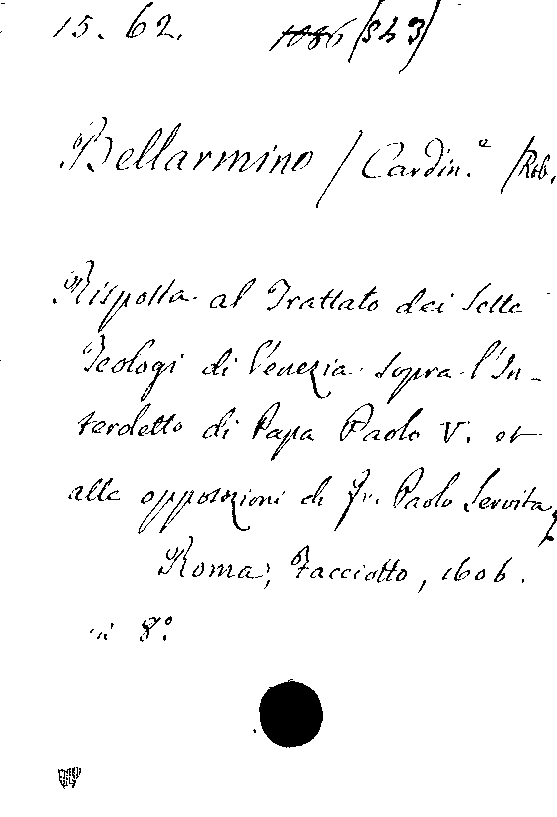 15. 62. 1086 (543)
Bellarmino / Cardin.e /Rob.
Risposta al Trattato dei Sette
Teologi di Venezia sopra l'In-
terdetto di Papa Paolo V. et
alle opposizioni di Fr. Paolo Servita,
Roma, Facciotto, 1606.
in 8º.